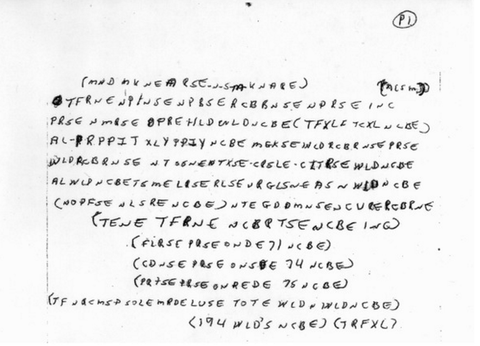 P1
(MND MKNEARSE-N-S-M-KNARE) (ACSM)
TFRNENPTNSENPBSERCBBRNSENPRSE INC
PRSENMRSE OPREHLDWLDNCBE (TFXLF TCXL NCBE)
AL-PRPPIT XLYPPIY NCBE MGKSE WLDRCBRNSE PRSE
WLDRCBRNSE NTSGNENTXSE-CRSLE-CITRSE WLDNCBE
ALWLPNCBETSMELRSERLSEURGLSNEASNWLDNCBE
(NOPFSE NLSRE NCBE) NTEGDDMNSENCURERCBRNE
(TENE TFRNE NCBRTSE NCBE INC)
(FLRSE PRSE ONDE 71 NCBE)
(CDNSE PRSE ONSDE 74 NCBE)
(PRTSE PRSE ONREDE 75 NCBE)
(TFNQCMSP SOLE MRDE LUSE TOTE WLDN WLDNCBE)
(194 WLD'S NCBE) (TRFXL)